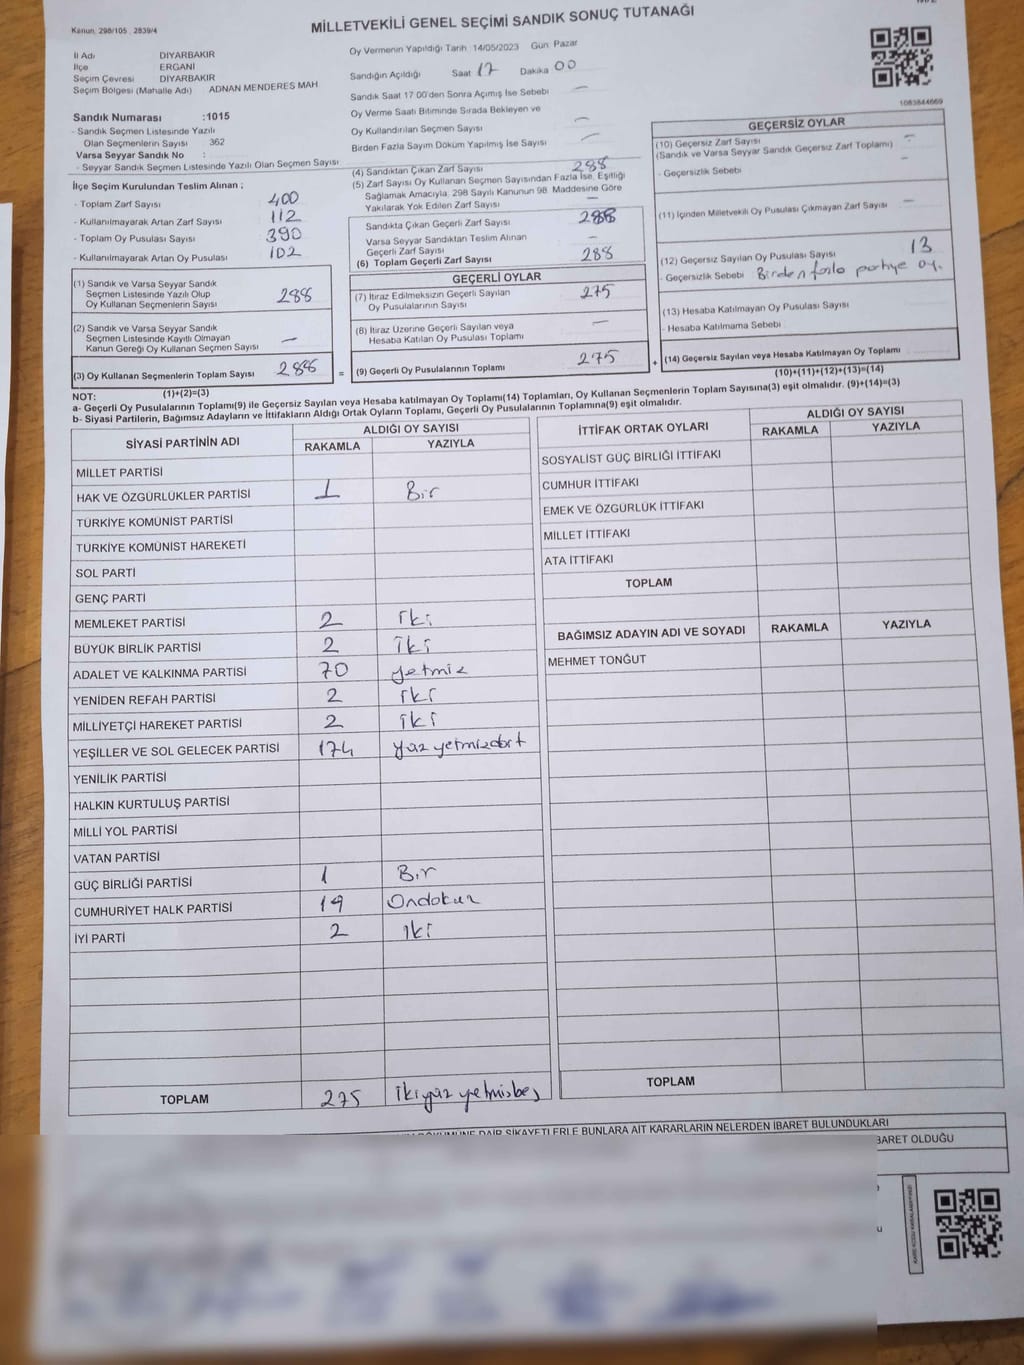 Kanun, 298/105 , 2839/4
MİLLETVEKİLİ GENEL SEÇİMİ SANDIK SONUÇ TUTANAĞI
İl Adı DİYARBAKIR
İlçe ERGANİ
Seçim Çevresi DİYARBAKIR
Seçim Bölgesi (Mahalle Adı) ADNAN MENDERES MAH
Sandık Numarası :1015
- Sandık Seçmen Listesinde Yazılı
Olan Seçmenlerin Sayısı 362
Varsa Seyyar Sandık No :
- Seyyar Sandık Seçmen Listesinde Yazılı Olan Seçmen Sayısı
İlçe Seçim Kurulundan Teslim Alınan ;
- Toplam Zarf Sayısı 400
- Kullanılmayarak Artan Zarf Sayısı 112
- Toplam Oy Pusulası Sayısı 390
- Kullanılmayarak Artan Oy Pusulası 102
(1) Sandık ve Varsa Seyyar Sandık
Seçmen Listesinde Yazılı Olup
Oy Kullanan Seçmenlerin Sayısı 288
(2) Sandık ve Varsa Seyyar Sandık
Seçmen Listesinde Kayıtlı Olmayan
Kanun Gereği Oy Kullanan Seçmen Sayısı —
(3) Oy Kullanan Seçmenlerin Toplam Sayısı 288
(1)+(2)=(3)
Oy Vermenin Yapıldığı Tarih 14/05/2023 Gün Pazar
Sandığın Açıldığı Saat 17 Dakika 00
Sandık Saat 17:00'den Sonra Açımış İse Sebebi —
Oy Verme Saati Bitiminde Sırada Bekleyen ve
Oy Kullandırılan Seçmen Sayısı —
Birden Fazla Sayım Döküm Yapılmış İse Sayısı —
(4) Sandıktan Çıkan Zarf Sayısı 288
(5) Zarf Sayısı Oy Kullanan Seçmen Sayısından Fazla İse, Eşitliği
Sağlamak Amacıyla, 298 Sayılı Kanunun 98. Maddesine Göre
Yakılarak Yok Edilen Zarf Sayısı —
Sandıkta Çıkan Geçerli Zarf Sayısı 288
Varsa Seyyar Sandıktan Teslim Alınan
Geçerli Zarf Sayısı —
(6) Toplam Geçerli Zarf Sayısı 288
GEÇERLİ OYLAR
(7) İtiraz Edilmeksizin Geçerli Sayılan
Oy Pusulalarının Sayısı 275
(8) İtiraz Üzerine Geçerli Sayılan veya
Hesaba Katılan Oy Pusulası Toplamı —
= (9) Geçerli Oy Pusulalarının Toplamı 275 +
1083844669
GEÇERSİZ OYLAR
(10) Geçersiz Zarf Sayısı —
(Sandık ve Varsa Seyyar Sandık Geçersiz Zarf Toplamı)
- Geçersizlik Sebebi —
(11) İçinden Milletvekili Oy Pusulası Çıkmayan Zarf Sayısı —
(12) Geçersiz Sayılan Oy Pusulası Sayısı 13
- Geçersizlik Sebebi Birden fazla partiye oy.
(13) Hesaba Katılmayan Oy Pusulası Sayısı
- Hesaba Katılmama Sebebi
(14) Geçersiz Sayılan veya Hesaba Katılmayan Oy Toplamı
(10)+(11)+(12)+(13)=(14)
NOT:
a- Geçerli Oy Pusulalarının Toplamı(9) ile Geçersiz Sayılan veya Hesaba katılmayan Oy Toplamı(14) Toplamları, Oy Kullanan Seçmenlerin Toplam Sayısına(3) eşit olmalıdır. (9)+(14)=(3)
b- Siyasi Partilerin, Bağımsız Adayların ve İttifakların Aldığı Ortak Oyların Toplamı, Geçerli Oy Pusulalarının Toplamına(9) eşit olmalıdır.
SİYASİ PARTİNİN ADI ALDIĞI OY SAYISI
RAKAMLA YAZIYLA
MİLLET PARTİSİ
HAK VE ÖZGÜRLÜKLER PARTİSİ 1 Bir
TÜRKİYE KOMÜNİST PARTİSİ
TÜRKİYE KOMÜNİST HAREKETİ
SOL PARTİ
GENÇ PARTİ
MEMLEKET PARTİSİ 2 iki
BÜYÜK BİRLİK PARTİSİ 2 iki
ADALET VE KALKINMA PARTİSİ 70 yetmiz
YENİDEN REFAH PARTİSİ 2 iki
MİLLİYETÇİ HAREKET PARTİSİ 2 iki
YEŞİLLER VE SOL GELECEK PARTİSİ 174 yüz yetmizdört
YENİLİK PARTİSİ
HALKIN KURTULUŞ PARTİSİ
MİLLİ YOL PARTİSİ
VATAN PARTİSİ
GÜÇ BİRLİĞİ PARTİSİ 1 Bir
CUMHURİYET HALK PARTİSİ 19 Ondokuz
İYİ PARTİ 2 iki
TOPLAM 275 ikiyüz yetmişbeş
İTTİFAK ORTAK OYLARI ALDIĞI OY SAYISI
RAKAMLA YAZIYLA
SOSYALİST GÜÇ BİRLİĞİ İTTİFAKI
CUMHUR İTTİFAKI
EMEK VE ÖZGÜRLÜK İTTİFAKI
MİLLET İTTİFAKI
ATA İTTİFAKI
TOPLAM
BAĞIMSIZ ADAYIN ADI VE SOYADI RAKAMLA YAZIYLA
MEHMET TONĞUT
TOPLAM
DAİR ŞİKAYETLERLE BUNLARA AİT KARARLARIN NELERDEN İBARET BULUNDUKLARI
BARET OLDUĞU